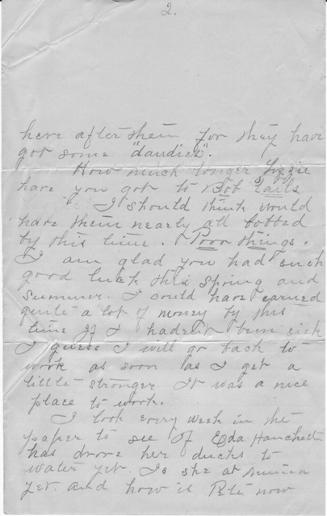 2.
here after them for they have
got some "dandies".
How much longer Lizzie
have you got to Bob tails
I should think you would
have them nearly all bobbed
by this time. Poor things.
I am glad you had such
good luck this spring and
summer. I could have earned
quite a lot of money by this
time if I hadn't been sick
I guess I will go back to
work as soon as I get a
little stronger. It was a nice
place to work.
I look every week in the
paper to see if Edda Hanchett
has drove her ducks to
water yet. Is she at
yet. and how is Pete now